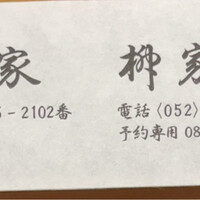 家 柳家
5-2102番 電話〈052〉
予約専用 08